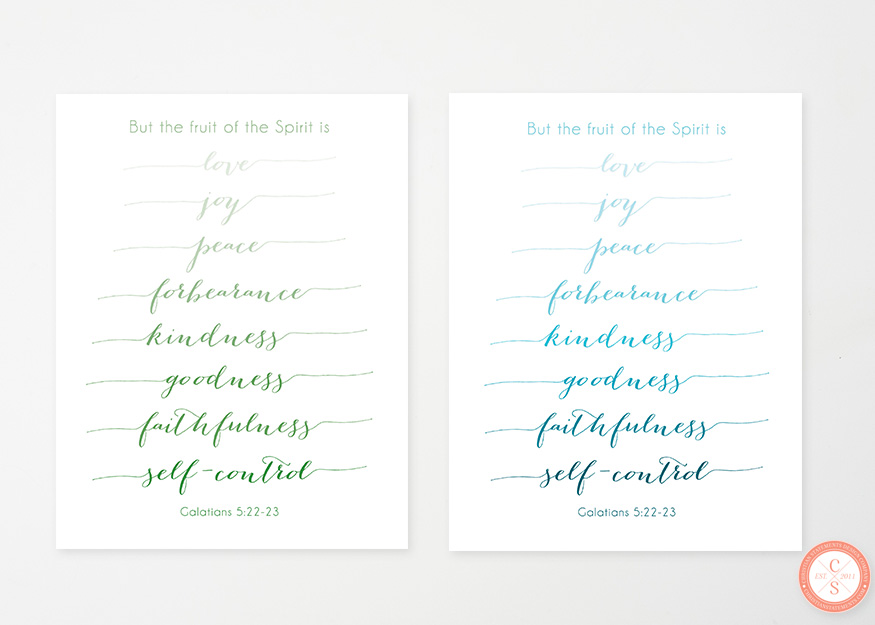 But the fruit of the Spirit is
love
joy
peace
forbearance
kindness
goodness
faithfulness
self-control
Galatians 5:22-23
But the fruit of the Spirit is
love
joy
peace
forbearance
kindness
goodness
faithfulness
self-control
Galatians 5:22-23
CHRISTIAN STATEMENTS DESIGN COMPANY
C
EST. 2011
S
CHRISTIANSTATEMENTS.COM